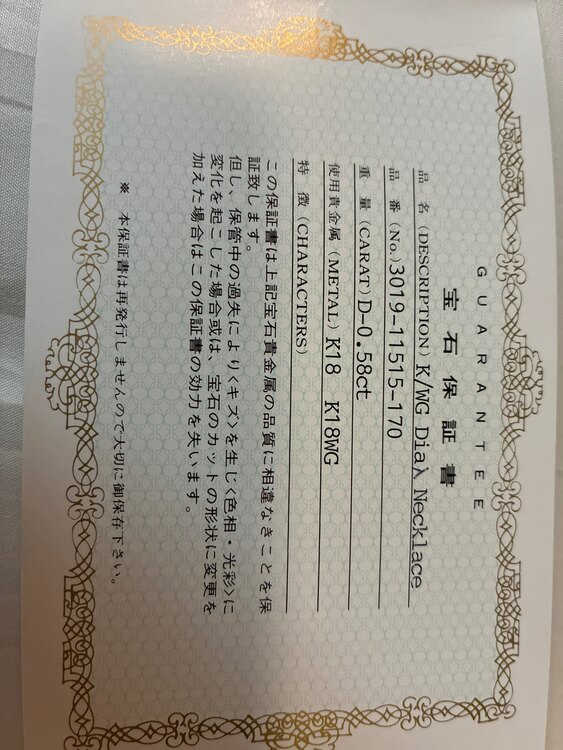 GUARANTEE
宝石保証書
品 名 (DESCRIPTION) K/WG Dia入 Necklace
品 番 (No.) 3019-11515-170
重 量 (CARAT) D-0.58ct
使用貴金属 (METAL) K18 K18WG
特 徴 (CHARACTERS)
この保証書は上記宝石貴金属の品質に相違なきことを保
証致します。
但し、保管中の過失により〈キズ〉を生じ〈色相・光彩〉に
変化を起こした場合或は、宝石のカットの形状に変更を
加えた場合はこの保証書の効力を失います。
※ 本保証書は再発行しませんので大切に御保存下さい。